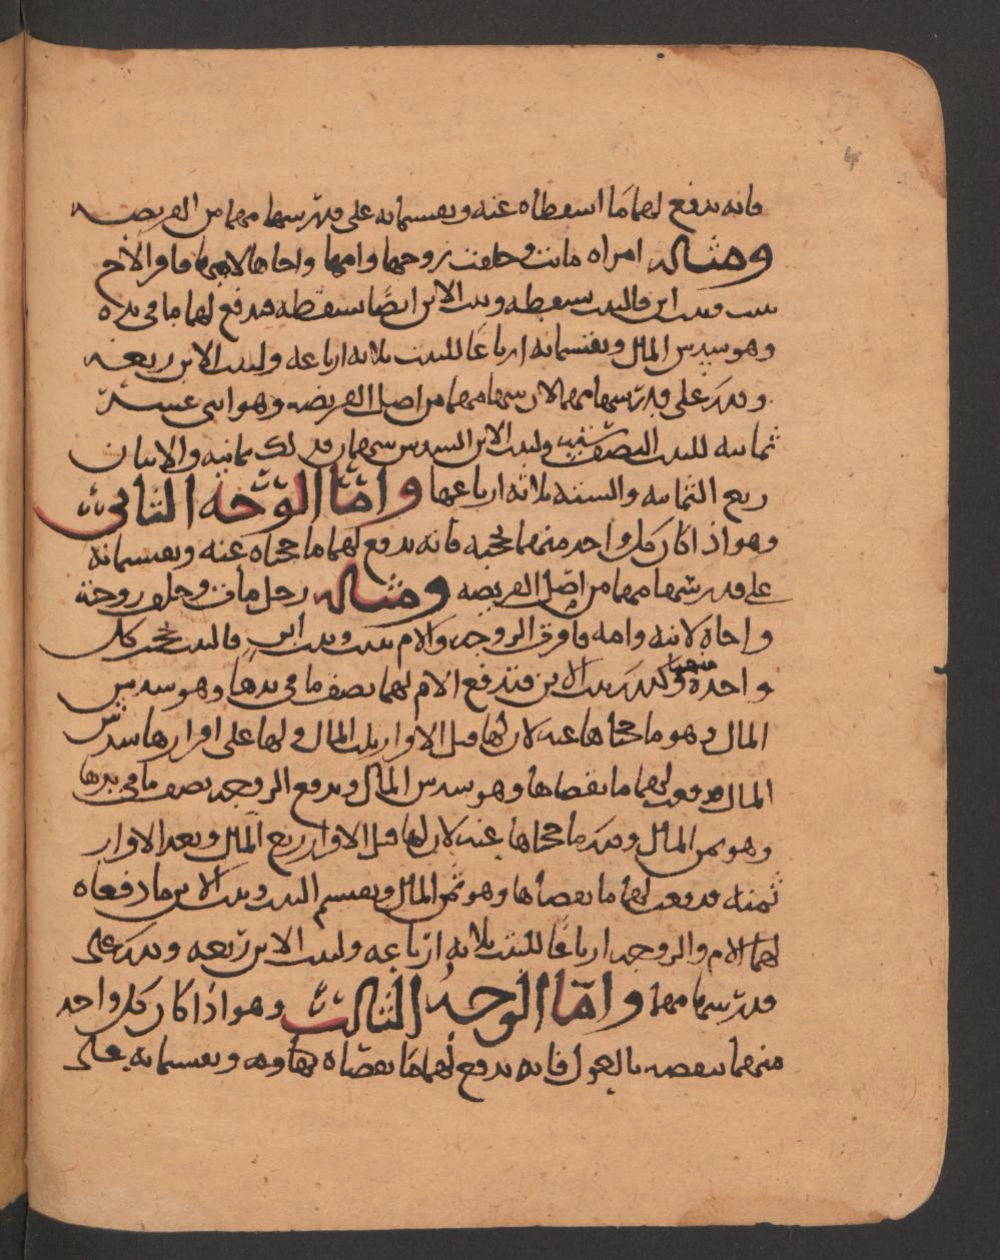 فانه يدفع لهما ما اسقطاه عنه ويقسمانه على قدر سهامهما من الفريضه
ومثاله امراه ماتت وخلفت زوجها وامها واخاها لامها فاقر الاخ
ببنت وبنت ابن فالبنت تسقطه وبنت الابن ايضًا تسقطه فيدفع لهما ما في يده
وهو سدس المال ويقتسمانه ارباعًا للبنت ثلاثه ارباعه ولبنت الابن ربعه
وذلك على قدر سهامهما لان سهامهما من اصل الفريضه وهو اثنى عشر
ثمانيه للبنت النصف سته ولبنت الابن السدس سهمان فذلك ثمانيه والاثنان
ربع الثمانيه والسته ثلاثه ارباعها واما الوجه الثاني
وهو اذا كان كل واحد منهما يحجبه فانه يدفع لهما ما حجباه عنه ويقسمانه
على قدر سهامهما من اصل الفريضه ومثاله رجل مات وخلف زوجة
واخاه لابيه وامه فاقرت الزوجه والام ببنت وبنت ابن فالبنت تحجب كل
واحدة منهما وكذلك بنت الابن فتدفع الام لهما نصف ما في يدها وهو سدس
المال وهو ما حجباها عنه لان لها قبل الاقرار ثلث المال ولها على اقرارها سدس
المال فدفعت لهما ما نقصاها وهو سدس المال وتدفع الزوجه نصف ما في يدها
وهو ثمن المال وذلك ما حجباها عنه لان لها قبل الاقرار ربع المال وبعد الاقرار
ثمنه فدفعت لهما ما نقصاها وهو ثمن المال ويقسم البنت وبنت الابن ما دفعاه
لهما الام والزوجه ارباعًا للبنت ثلاثه ارباعه ولبنت الابن ربعه وذلك على
قدر سهامهما واما الوجه الثالث وهو اذا كان كل واحد
منهما ينقصه بالعول فانه يدفع لهما ما نقصاه ويقسمانه على